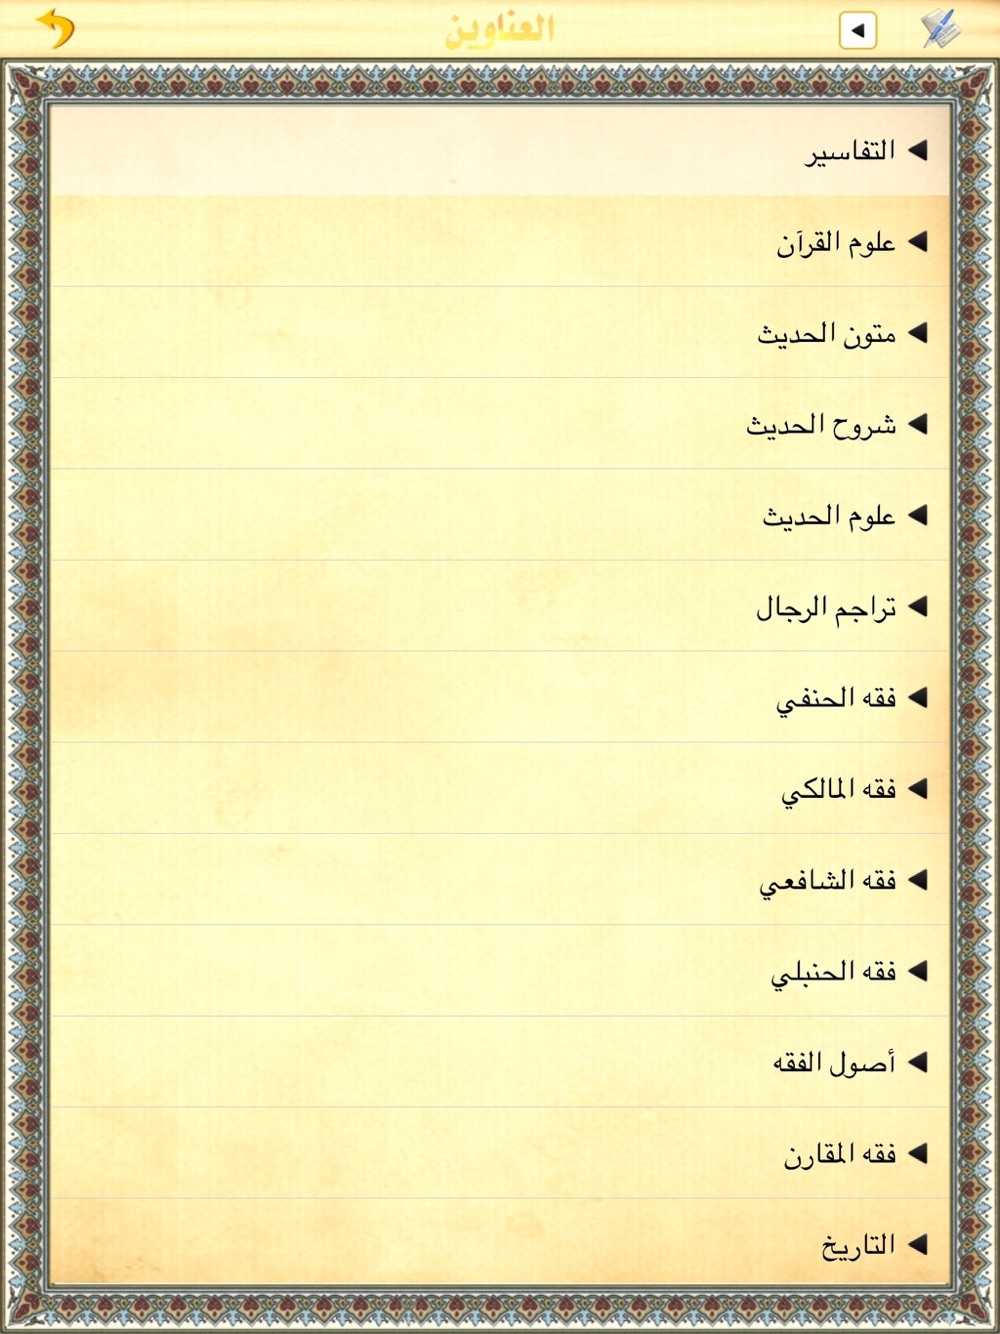 العناوين
التفاسير
علوم القرآن
متون الحديث
شروح الحديث
علوم الحديث
تراجم الرجال
فقه الحنفي
فقه المالكي
فقه الشافعي
فقه الحنبلي
أصول الفقه
فقه المقارن
التاريخ